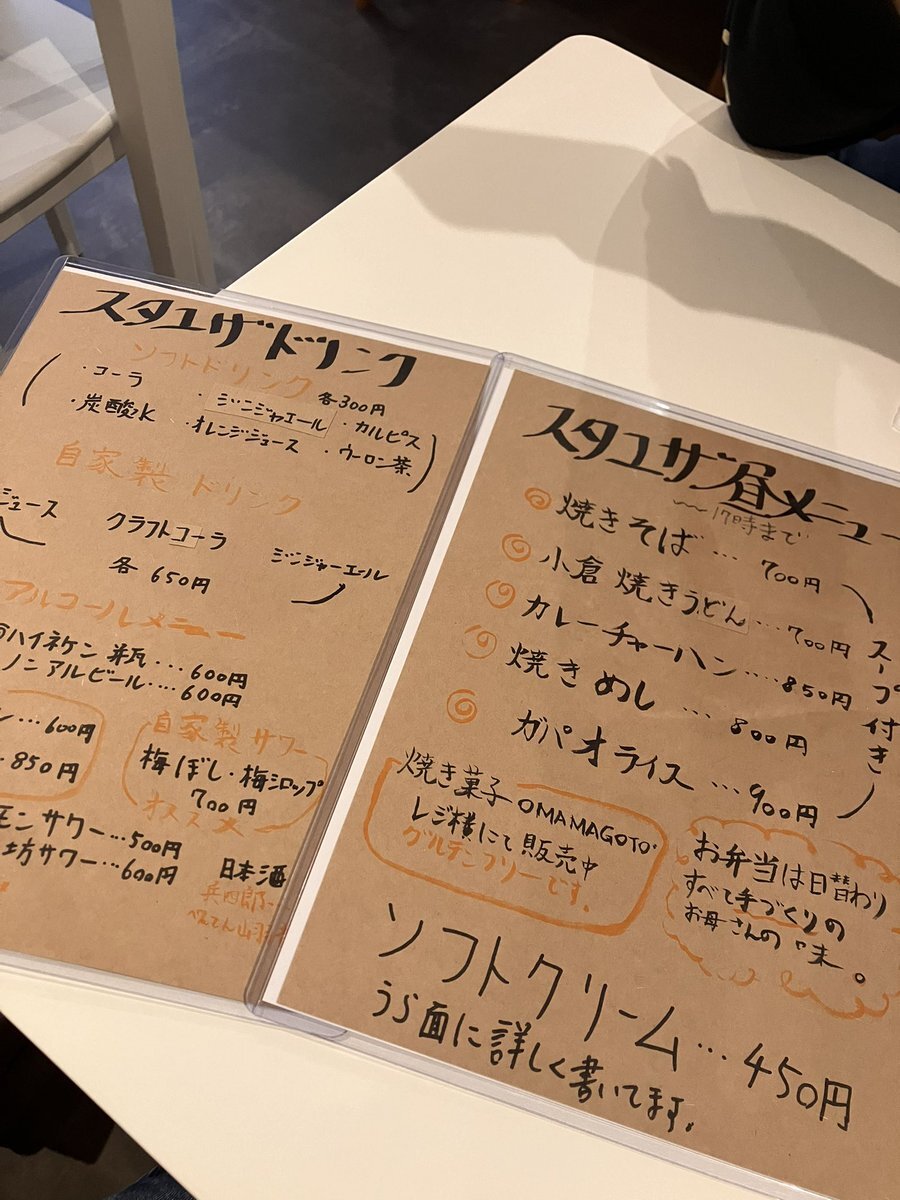 スタユザドリンク
ソフトドリンク 各300円
・コーラ ・ジンジャエール ・カルピス
・炭酸水 ・オレンジジュース ・ウーロン茶
自家製ドリンク
ジュース クラフトコーラ ジンジャーエール
各650円
アルコールメニュー
ハイネケン 瓶...600円
ノンアルビール...600円
ン...600円
850円
自家製サワー
梅ぼし・梅シロップ
700円
オススメ
モンサワー...500円
坊サワー...600円
日本酒
スタユザ昼メニュー
〜17時まで
焼きそば...700円
小倉焼きうどん...700円
カレーチャーハン...850円
焼きめし...800円
ガパオライス...900円
スープ付き
焼き菓子OMAMAGOTO・
レジ横にて販売中
グルテンフリーです。
お弁当は日替わり
すべて手づくりの
お母さんの味。
ソフトクリーム...450円
うら面に詳しく書いてます。